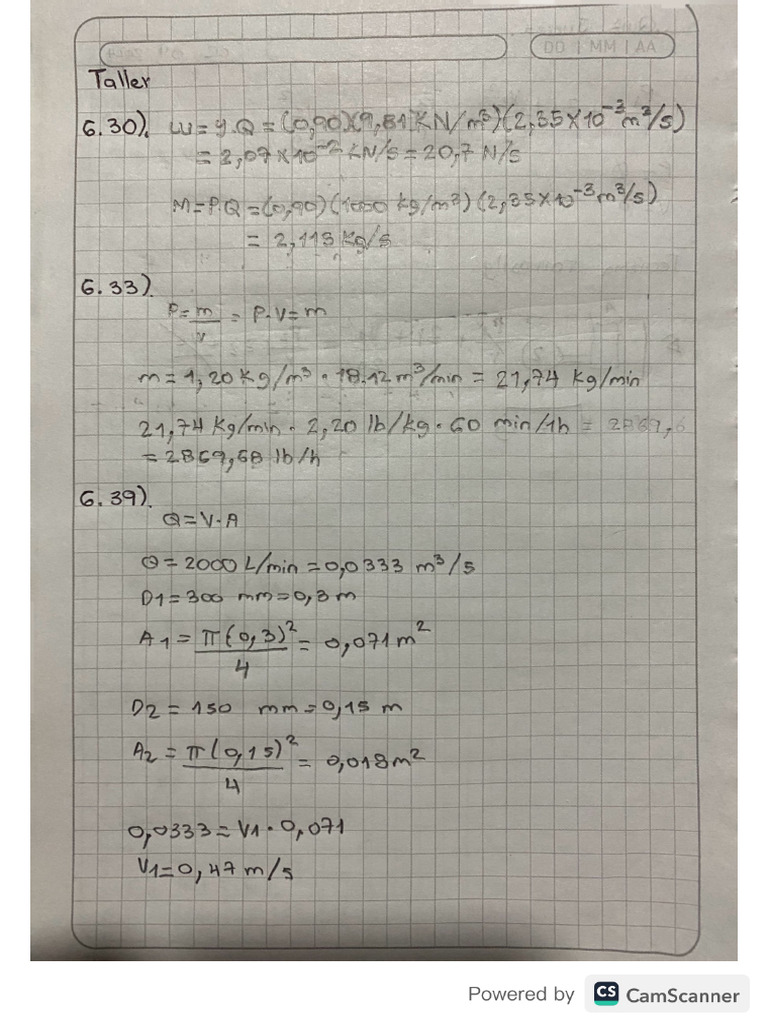 DD | MM | AA
Taller
6.30). W = γ.Q = (0,90)(9,81 KN/m³)(2,35×10⁻³m³/s)
= 2,07×10⁻² KN/s = 20,7 N/s
M = P.Q = (0,90)(1000 kg/m³)(2,35×10⁻³m³/s)
= 2,115 Kg/s
6.33).
P = m/v = P.V = m
m = 1,20 Kg/m³ · 18.12 m³/min = 21,74 Kg/min
21,74 Kg/min · 2,20 lb/kg · 60 min/1h = 2869,6
= 2869,68 lb/h
6.39).
Q = V·A
Q = 2000 L/min = 0,0333 m³/s
D1 = 300 mm = 0,3 m
A1 = π(0,3)²/4 = 0,071 m²
D2 = 150 mm = 0,15 m
A2 = π(0,15)²/4 = 0,018 m²
0,0333 = V1 · 0,071
V1 = 0,47 m/s
Powered by CS CamScanner